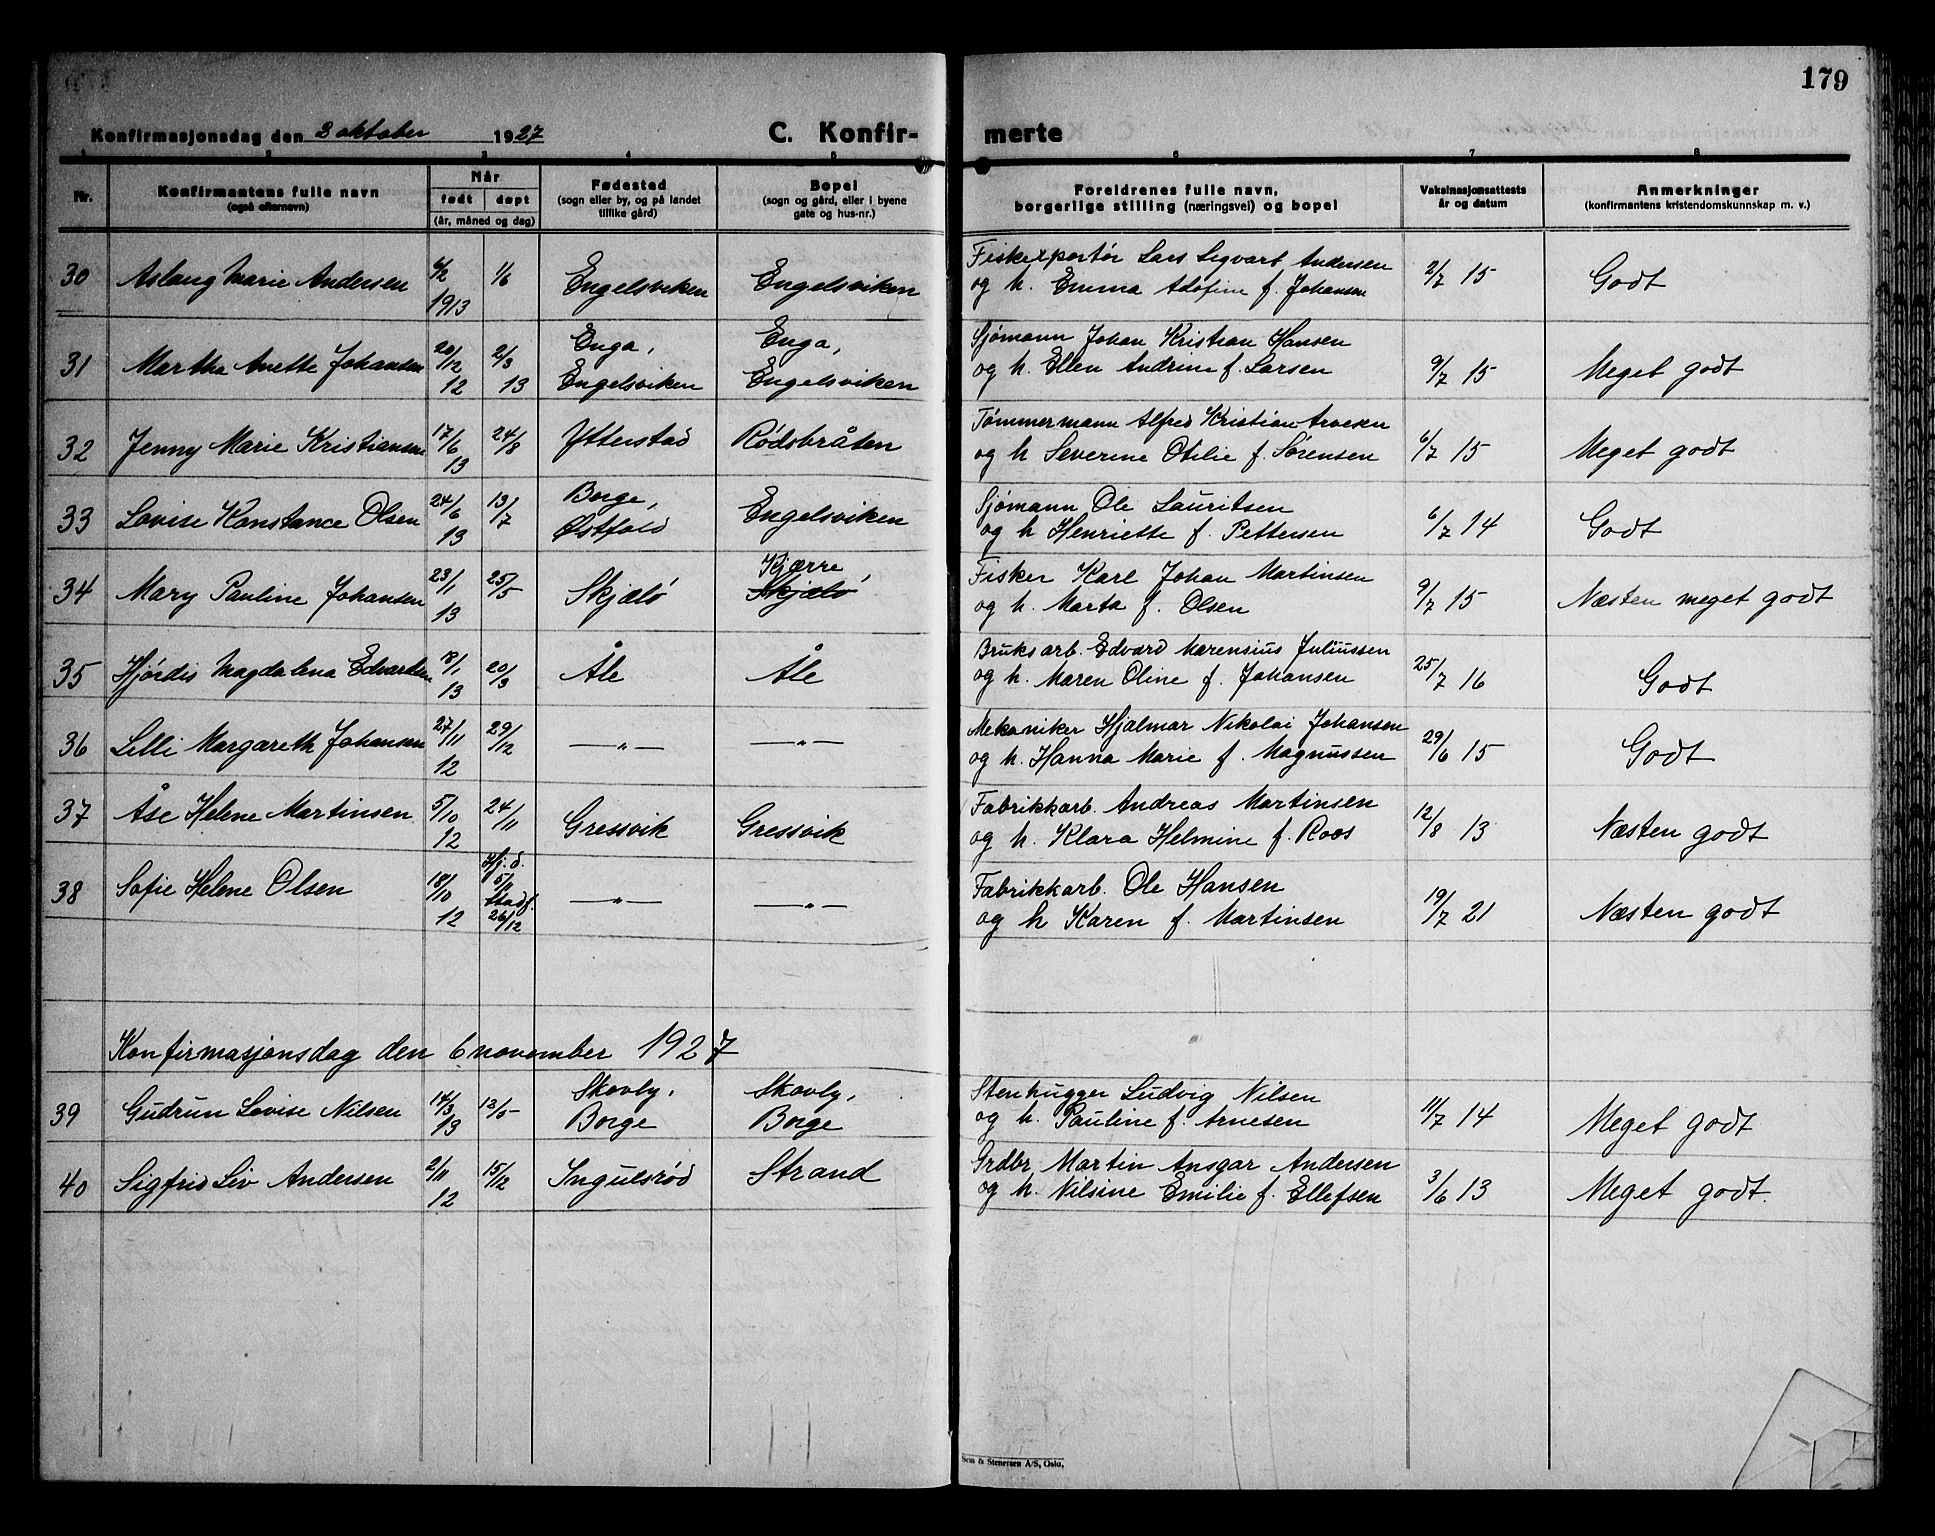 179
Konfirmasjonsdag den 3 oktober 1927 C. Konfirmerte
1 2 3 4 5 6 7 8
Nr. Konfirmantens fulle navn (også efternavn) Når født døpt (år, måned og dag) Fødested (sogn eller by, og på landet tillike gård) Bopel (sogn og gård, eller i byene gate og hus-nr.) Foreldrenes fulle navn, borgerlige stilling (næringsvei) og bopel Vaksinasjonsattests år og datum Anmerkninger (konfirmantens kristendomskunnskap m. v.)
30 Aslaug Marie Andersen 6/2 1913 1/6 Engelsviken Engelsviken Fiskexportør Lars Sigvart Andersen
og h. Emma Adofine f. Johansen 2/7 15 Godt
31 Martha Anette Johansen 20/12 12 2/3 13 Enga, Engelsviken Enga, Engelsviken Sjømann Johan Kristian Hansen
og h. Ellen Andrine f. Larsen 9/7 15 Meget godt
32 Jenny Marie Kristiansen 17/6 13 24/8 Ytterstad Rødsbråten Tømmermann Alfred Kristian Arvesen
og h Severine Otilie f. Sørensen 6/7 15 Meget godt
33 Lovise Konstance Olsen 24/6 13 13/7 Borge, Østfold Engelsviken Sjømann Ole Lauritsen
og h Henriette f. Pettersen 6/7 14 Godt
34 Mary Pauline Johansen 23/1 13 25/5 Skjælø Kjærre Skjælø Fisker Karl Johan Martinsen
og h. Marta f. Olsen 9/7 15 Næsten meget godt
35 Hjørdis Magdalena Edvardsen 18/1 13 20/3 Åle Åle Bruksarb. Edvard Marensius Juliussen
og h. Maren Oline f. Johansen 25/7 16 Godt
36 Lilli Margareth Johansen 27/11 12 29/12 —„— —„— Mekaniker Hjalmar Nikolai Johansen
og h. Hanna Marie f. Magnussen 29/6 15 Godt
37 Åse Helene Martinsen 5/10 12 24/11 Gressvik Gressvik Fabrikkarb. Andreas Martinsen
og h. Klara Helmine f. Roos 12/8 13 Næsten godt
38 Sofie Helene Olsen 18/10 12 Hj.d. 5/11 Stadf. 26/12 —„— —„— Fabrikkarb. Ole Hansen
og h Karen f. Martinsen 19/7 21 Næsten godt
Konfirmasjonsdag den 6 november 1927
39 Gudrun Lovise Nilsen 14/3 13 13/5 Skovly, Borge Skovly, Borge Stenhugger Ludvig Nilsen
og h. Pauline f. Arnesen 11/7 14 Meget godt
40 Sigfrid Liv Andersen 2/11 12 15/12 Ingulsrød Strand Grdbr Martin Ansgar Andersen
og h. Nilsine Emilie f. Ellefsen 3/6 13 Meget godt.
Sem & Stenersen A/S, Oslo.